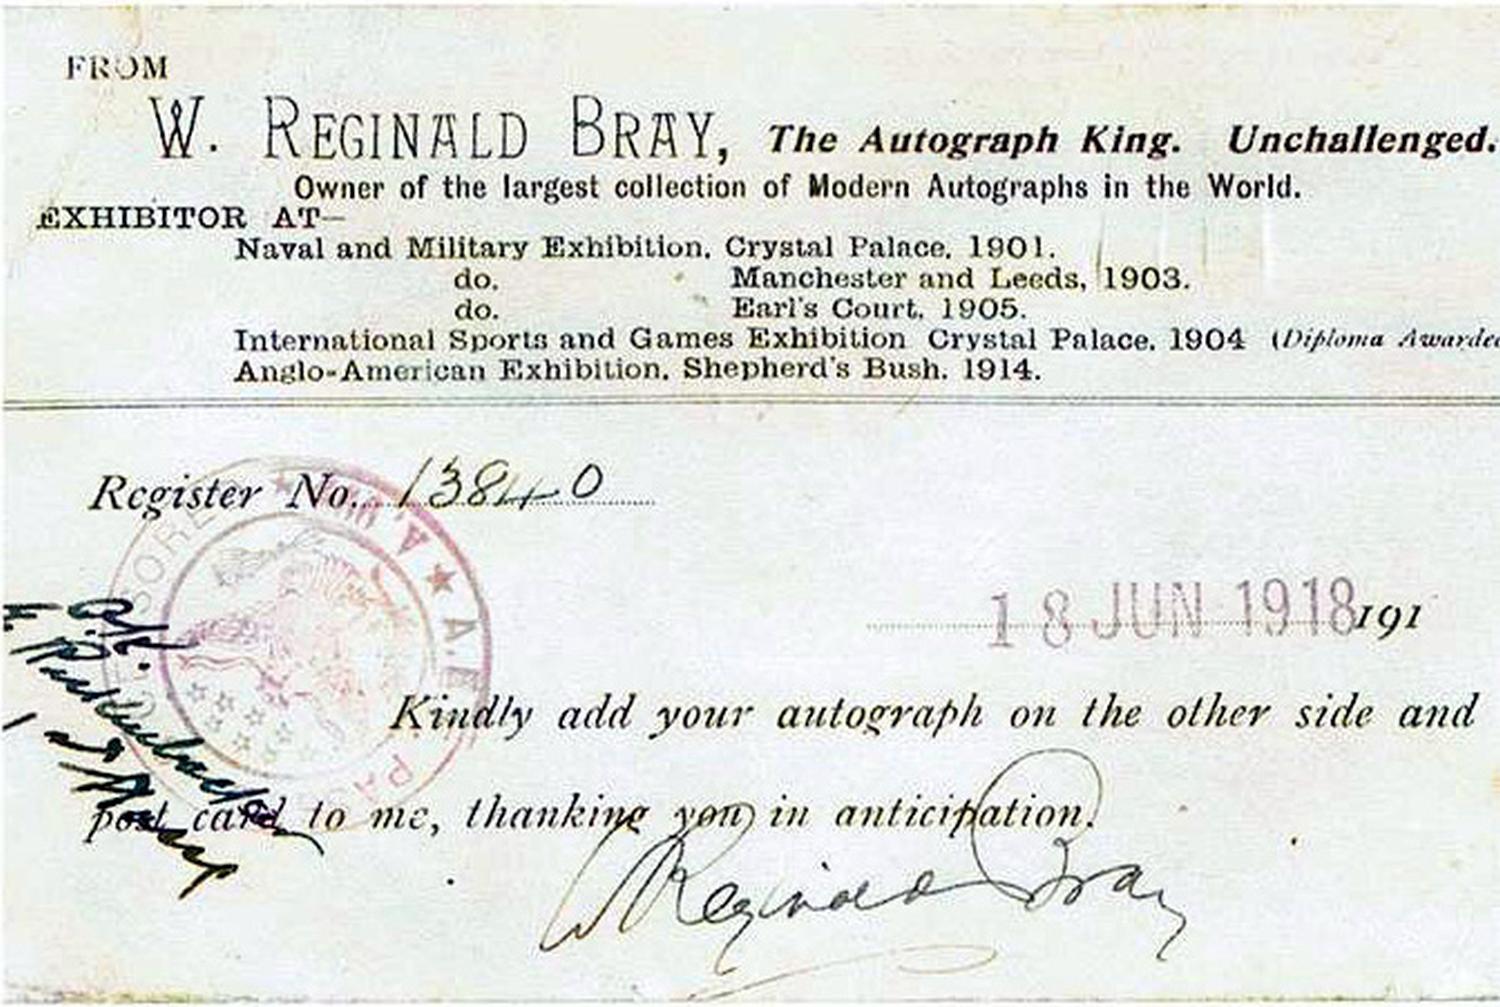 FROM
W. REGINALD BRAY, The Autograph King. Unchallenged.
Owner of the largest collection of Modern Autographs in the World.
EXHIBITOR AT—
Naval and Military Exhibition, Crystal Palace, 1901.
do. Manchester and Leeds, 1903.
do. Earl's Court, 1905.
International Sports and Games Exhibition Crystal Palace, 1904 (Diploma Awarded
Anglo-American Exhibition, Shepherd's Bush, 1914.
Register No. 13840
A. ★ A.E
PA
18 JUN 1918 191
Kindly add your autograph on the other side and
post card to me, thanking you in anticipation.
W Reginald Bray